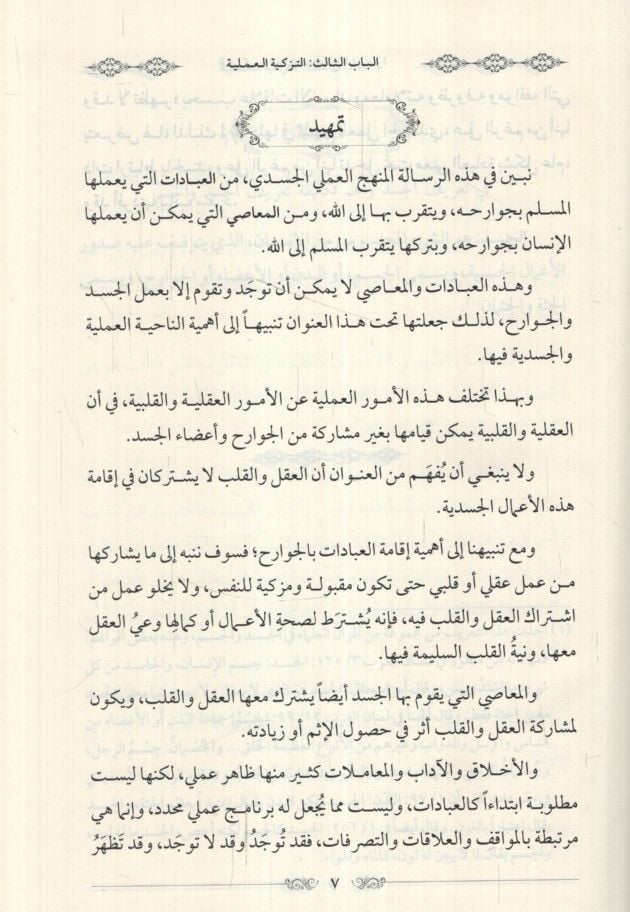 الباب الثالث: التزكية العملية
تمهيد
نبين في هذه الرسالة المنهج العملي الجسدي، من العبادات التي يعملها
المسلم بجوارحه، ويتقرب بها إلى الله، ومن المعاصي التي يمكن أن يعملها
الإنسان بجوارحه، وبتركها يتقرب المسلم إلى الله.
وهذه العبادات والمعاصي لا يمكن أن توجَد وتقوم إلا بعمل الجسد
والجوارح، لذلك جعلتها تحت هذا العنوان تنبيهاً إلى أهمية الناحية العملية
والجسدية فيها.
وبهذا تختلف هذه الأمور العملية عن الأمور العقلية والقلبية، في أن
العقلية والقلبية يمكن قيامها بغير مشاركة من الجوارح وأعضاء الجسد.
ولا ينبغي أن يُفهَم من العنوان أن العقل والقلب لا يشتركان في إقامة
هذه الأعمال الجسدية.
ومع تنبيهنا إلى أهمية إقامة العبادات بالجوارح؛ فسوف ننبه إلى ما يشاركها
من عمل عقلي أو قلبي حتى تكون مقبولة ومزكية للنفس، ولا يخلو عمل من
اشتراك العقل والقلب فيه، فإنه يُشترَط لصحةِ الأعمال أو كمالِها وعيُ العقل
معها، ونيةُ القلب السليمة فيها.
والمعاصي التي يقوم بها الجسد أيضاً يشترك معها العقل والقلب، ويكون
لمشاركة العقل والقلب أثر في حصول الإثم أو زيادته.
والأخلاق والآداب والمعاملات كثير منها ظاهر عملي، لكنها ليست
مطلوبة ابتداءاً كالعبادات، وليست مما يُجعل له برنامج عملي محدد، وإنما هي
مرتبطة بالمواقف والعلاقات والتصرفات، فقد تُوجَدُ وقد لا توجَد، وقد تَظهَرُ
٧